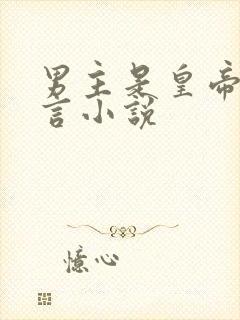 男主是皇帝
言小说
憶心